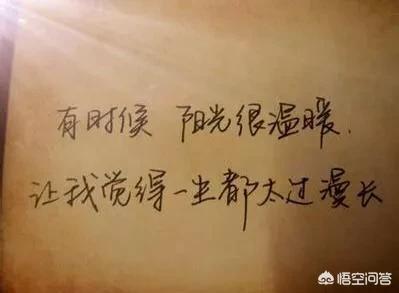 有时候 阳光很温暖.
让我觉得一生都太过漫长
悟空问答